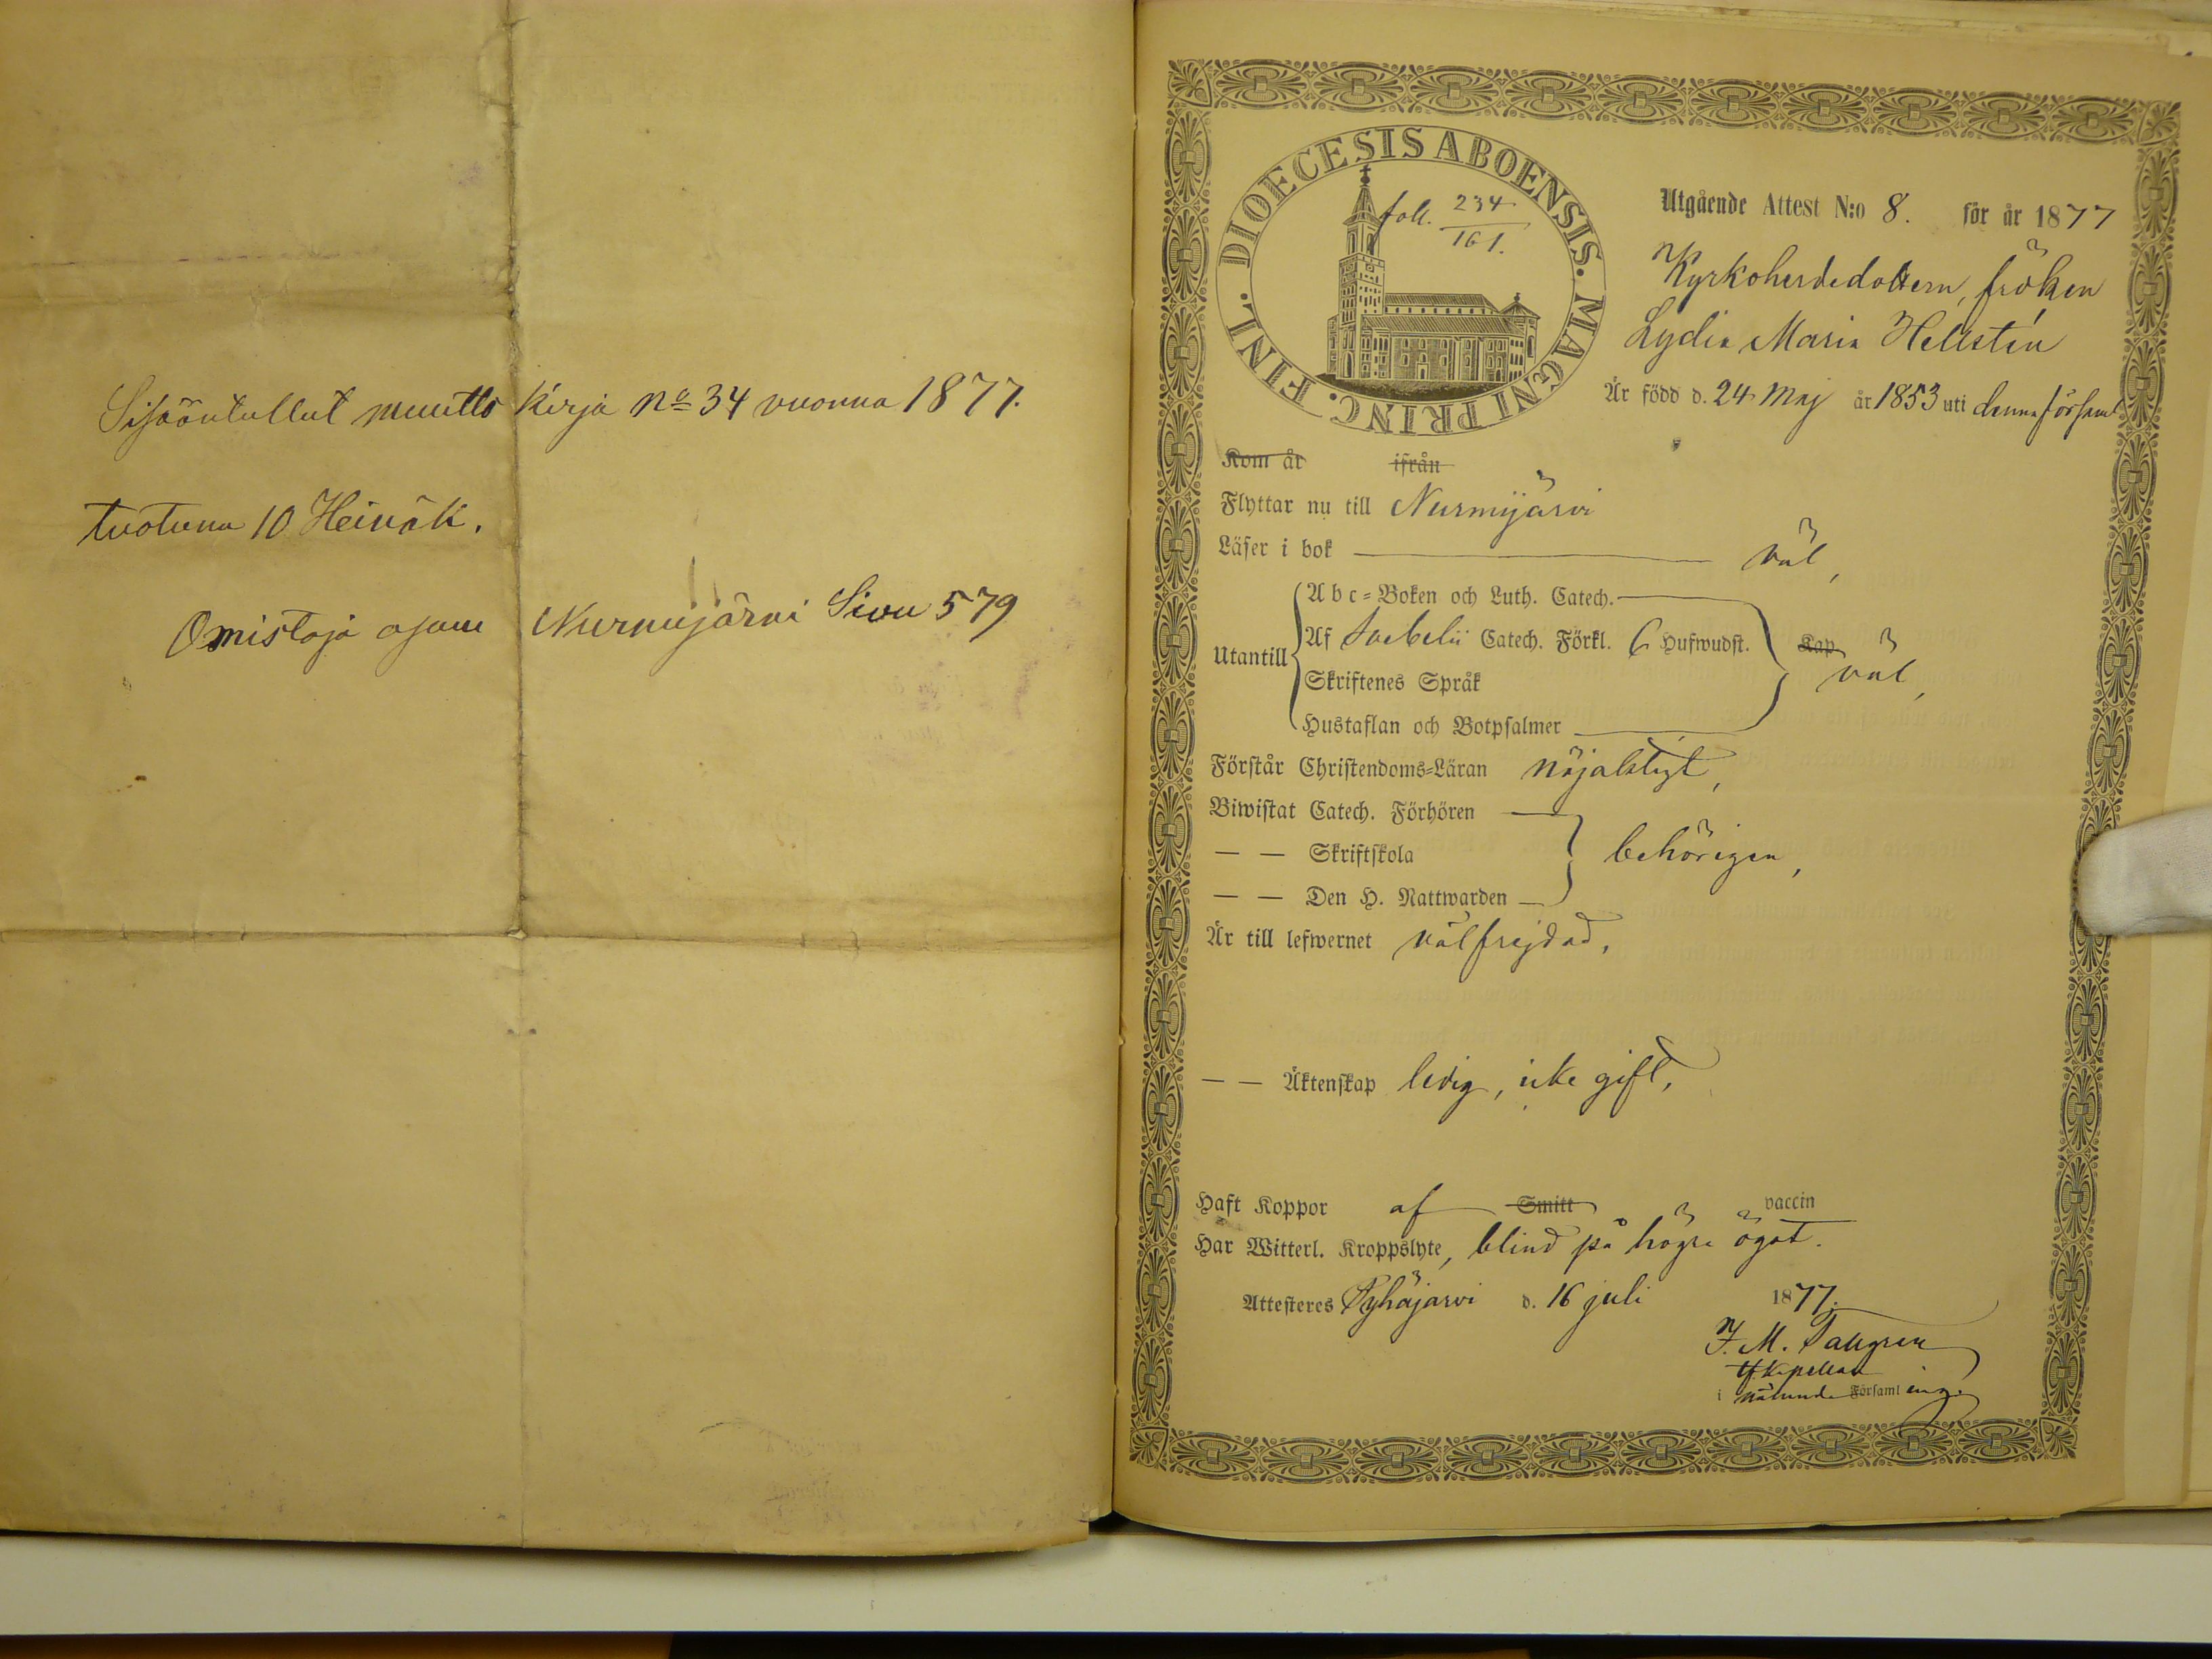 Sisääntullut muutto kirja nº 34 vuonna 1877.
tuotuna 10 Heinäk.
Omistaja asuu Nurmijärvi Sivu 579
DIOECESIS ABOENSIS. MAGNI PRINC. FINL.
foll. 234
161.
Utgående Attest N:o 8. för år 1877
Kyrkoherdedottern, fröken
Lydia Maria Hellstén
Är född d. 24 Maj år 1853 uti denna församl
Kom år ifrån
Flyttar nu till Nurmijärvi
Läser i bok väl,
Abc-Boken och Luth. Catech.
Utantill Af Catech. Förkl. 6 Hufwudst. Kap väl,
Skriftenes Språk
Hustaflan och Botpsalmer
Förstår Christendoms-Läran nöjaktigt,
Biwistat Catech. Förhören
— — Skriftskola behörigen,
— — Den H. Nattwarden
Är till lefwernet välfrejdad,
— — Äktenskap ledig, icke gift,
Haft Koppor af Smitt vaccin
Har Witterl. Kroppslyte, blind på högra ögat.
Attesteres Pyhäjärvi d. 16 juli 1877.
F. M. Tallgren
Kapellan
i Församling.